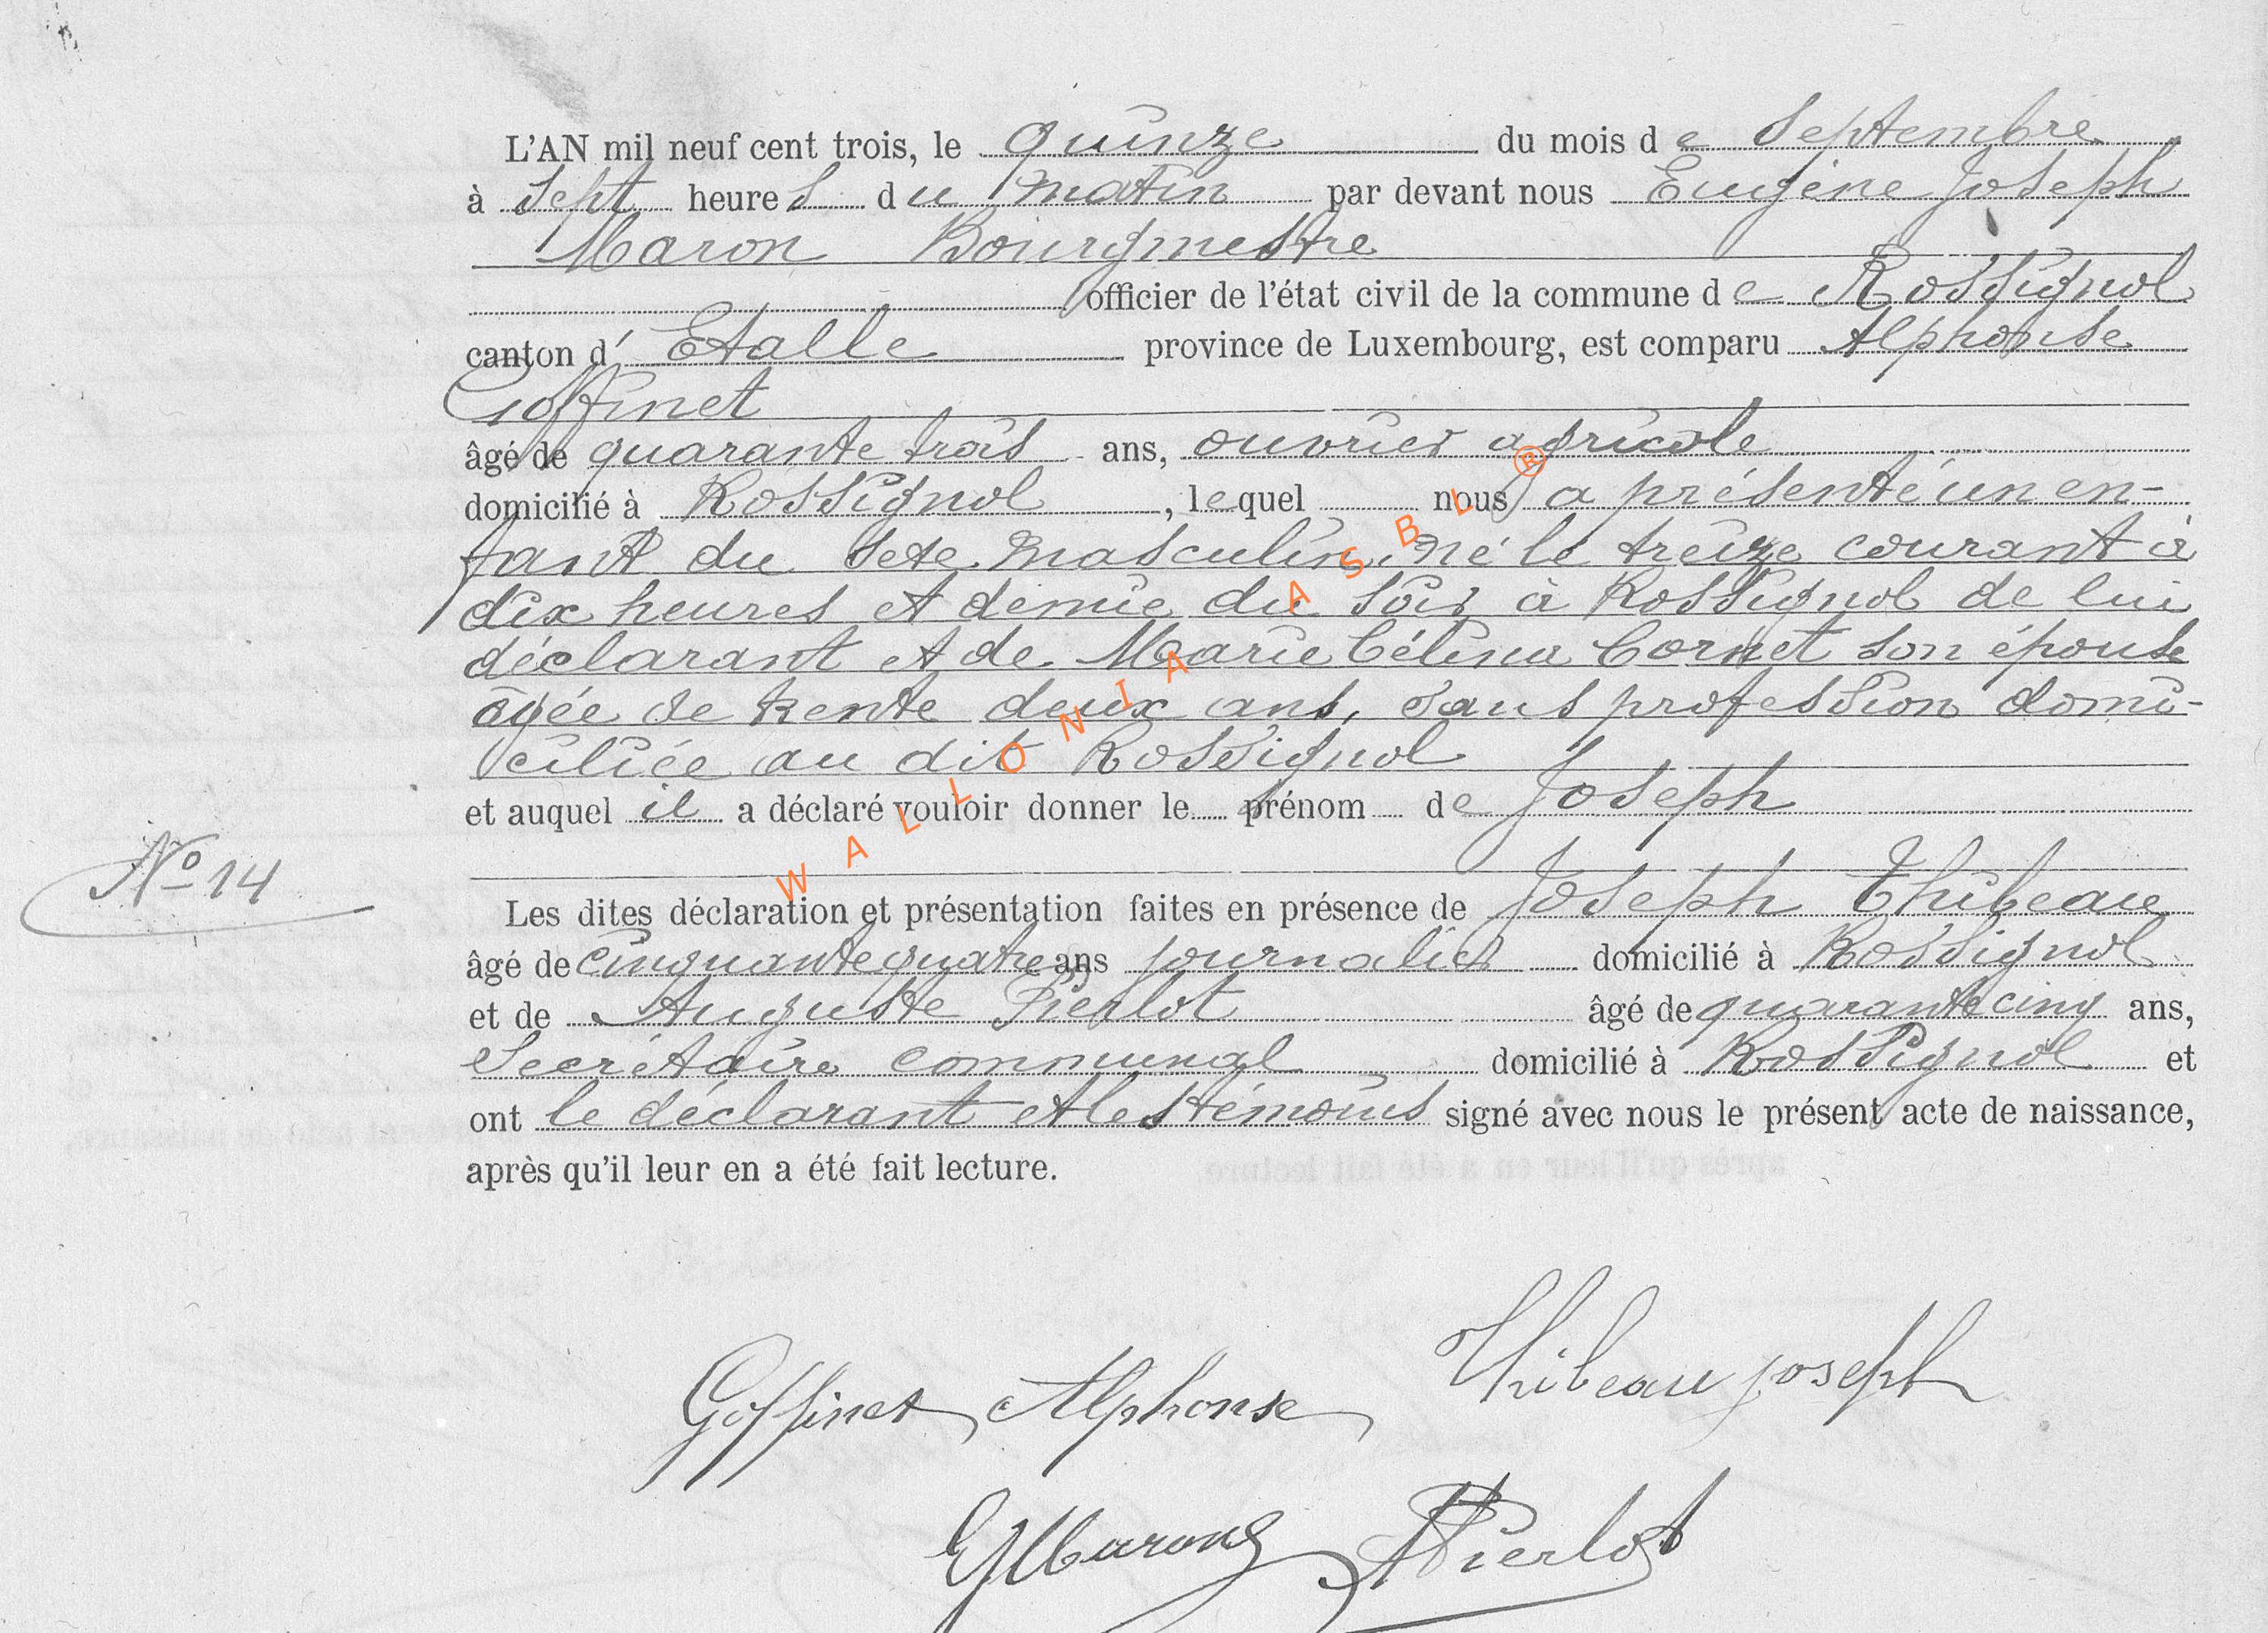 L'AN mil neuf cent trois, le quinze du mois de Septembre
à Sept heures du matin par devant nous Eugène Joseph
Maron Bourgmestre
officier de l'état civil de la commune de Rossignol
canton d' Etalle province de Luxembourg, est comparu Alphonse
Goffinet
âgé de quarante trois ans, ouvrier agricole
domicilié à Rossignol, lequel nous a présenté un en-
fant du sexe masculin, né le treize courant à
dix heures et demie du soir à Rossignol de lui
déclarant et de Marie Célina Cornet son épouse
âgée de trente deux ans, sans profession domi-
ciliée au dit Rossignol
et auquel il a déclaré vouloir donner le prénom de Joseph
N° 14
Les dites déclaration et présentation faites en présence de Joseph Thibeau
âgé de cinquante quatre ans journalier domicilié à Rossignol
et de Auguste Pierlot âgé de quarante cinq ans,
Secrétaire communal domicilié à Rossignol et
ont le déclarant et les témoins signé avec nous le présent acte de naissance,
après qu'il leur en a été fait lecture.
Goffinet Alphonse Thibeau joseph
EJMaron APierlot
WALLONIA ASBL ®